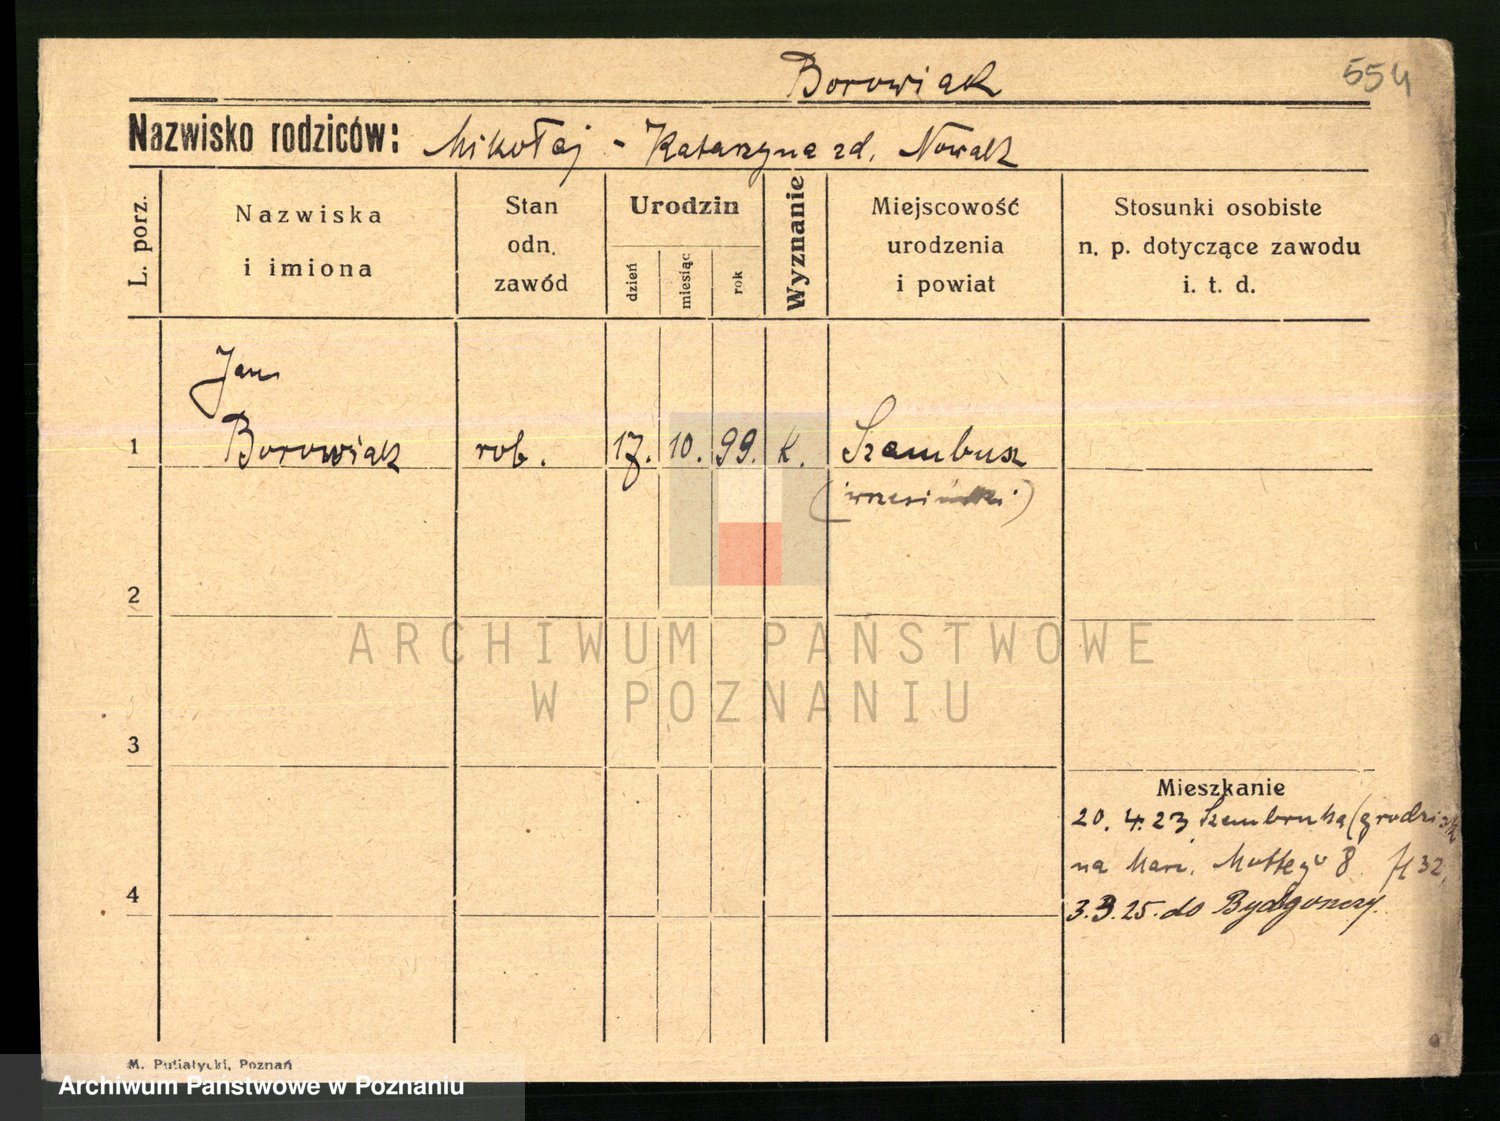 Borowiak
554
Nazwisko rodziców: Mikołaj - Katarzyna zd. Nowak
L. porz.
Nazwiska
i imiona
Stan
odn.
zawód
Urodzin
dzień
miesiąc
rok
Wyznanie
Miejscowość
urodzenia
i powiat
Stosunki osobiste
n. p. dotyczące zawodu
i. t. d.
Jan
1 Borowiak rob. 17. 10. 99. k. Szembusz
2
3
Mieszkanie
20. 4. 23
na Mari. 8
4
3. 3. 25. do Bydgoszczy.
M. Putiatycki, Poznań
ARCHIWUM PAŃSTWOWE
W POZNANIU
Archiwum Państwowe w Poznaniu